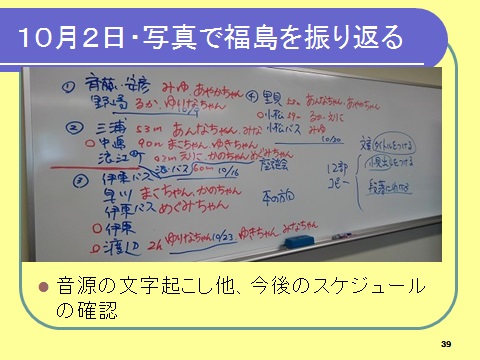 10月2日・写真で福島を振り返る
① 斉藤、安彦 みゆ、あやかちゃん
るか、ゆりなちゃん
② 三浦 53m あんなちゃん、みな
90m まこちゃん、ゆきちゃん
浪江町 92m えりこ、かのちゃん、めぐみちゃん
60m 10/16
③ 伊東バス
早川 まこちゃん、かのちゃん
伊東バス めぐみちゃん
伊東
渡辺 2h ゆりなちゃん 10/23 ゆきちゃん、みなちゃん
④ 里見 52m あんなちゃん、あやちゃん
小松 るか、えりこ
小松バス みゆ
10/30
座談会
本の方向
12部
コピー
文章
タイトルをつける
小見出しをつける
段落に分ける
音源の文字起こし他、今後のスケジュール
の確認
39